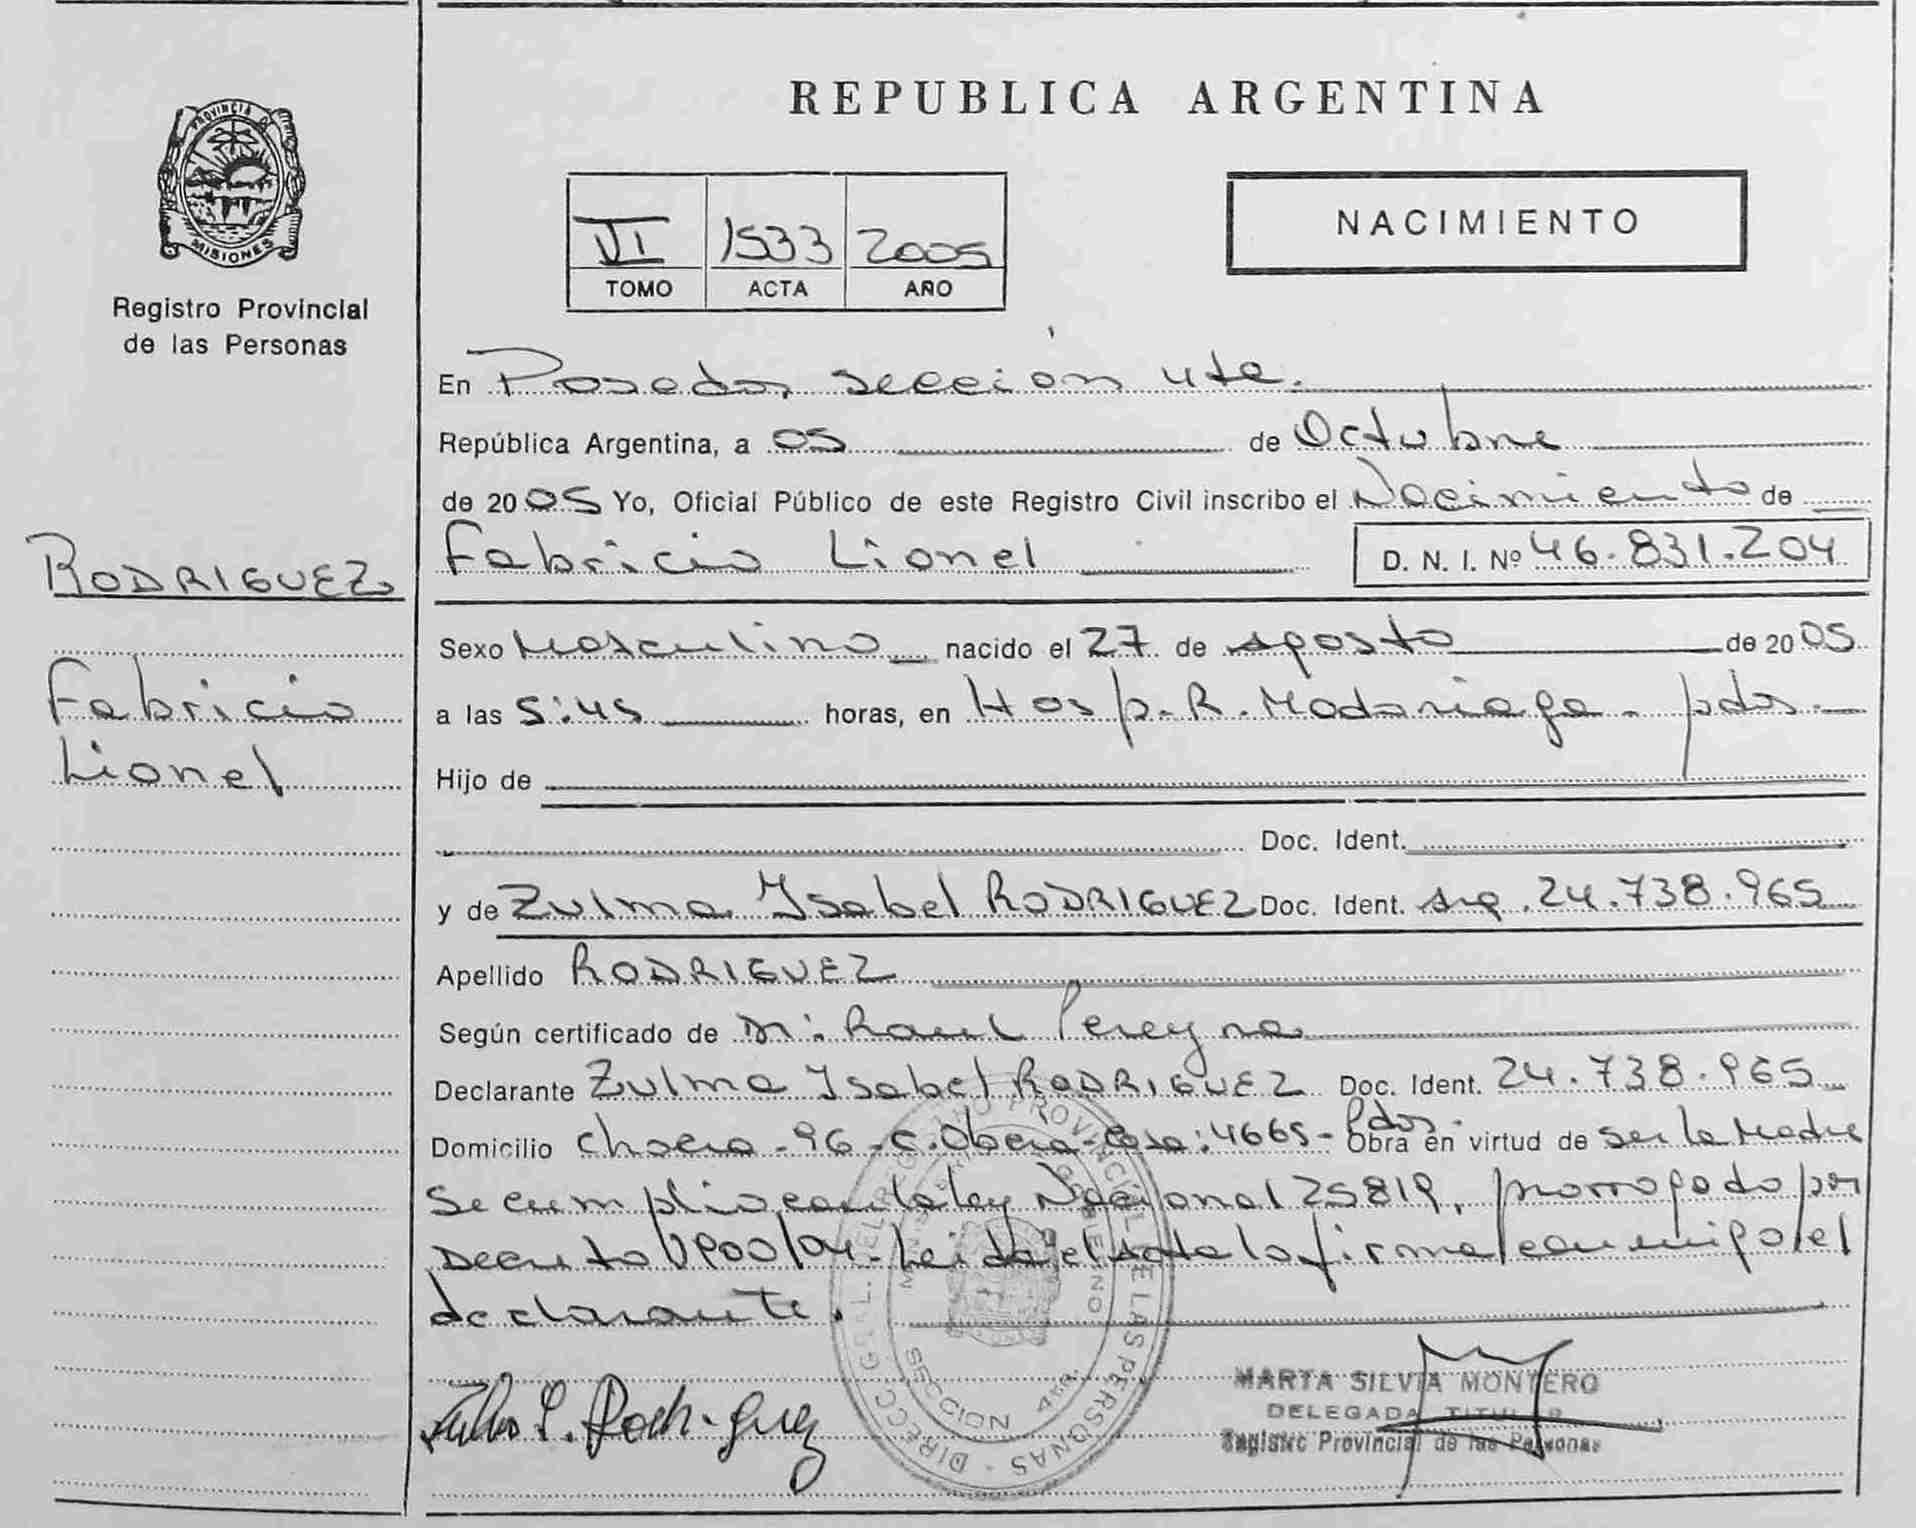 PROVINCIA DE
MISIONES
Registro Provincial
de las Personas
RODRIGUEZ
Fabricio
Lionel
REPUBLICA ARGENTINA
VI 1533 2005
TOMO ACTA AÑO
NACIMIENTO
En Posadas, sección 4ta.
República Argentina, a 05 de Octubre
de 2005 Yo, Oficial Público de este Registro Civil inscribo el Nacimiento de
Fabricio Lionel D. N. I. Nº 46.831.204
Sexo Masculino nacido el 27 de agosto de 2005
a las 5:45 horas, en Hosp. R. Madariaga - pdas.
Hijo de
Doc. Ident.
y de Zulma Ysabel RODRIGUEZ Doc. Ident. arg. 24.738.965
Apellido RODRIGUEZ
Según certificado de Dr: Raul Pereyra
Declarante Zulma Ysabel RODRIGUEZ Doc. Ident. 24.738.965
Domicilio chacra - 96 - C. Obera - Casa: 4665 - Pdas. Obra en virtud de ser la Madre
Se cumplio con la ley Nacional 25819, prorrogado por
Decreto 1900/04 - Leida el acta la firma conmigo el
declarante.
Zulma Y. Rodriguez
DIRECC. GRAL. DEL REGISTRO PROVINCIAL DE LAS PERSONAS
SECCION 4ta.
MARTA SILVIA MONTERO
DELEGADA TITULAR
Registro Provincial de las Personas